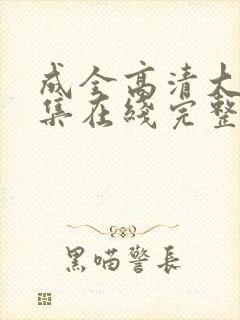 成全高清大
集在綫完整
黑喵警長